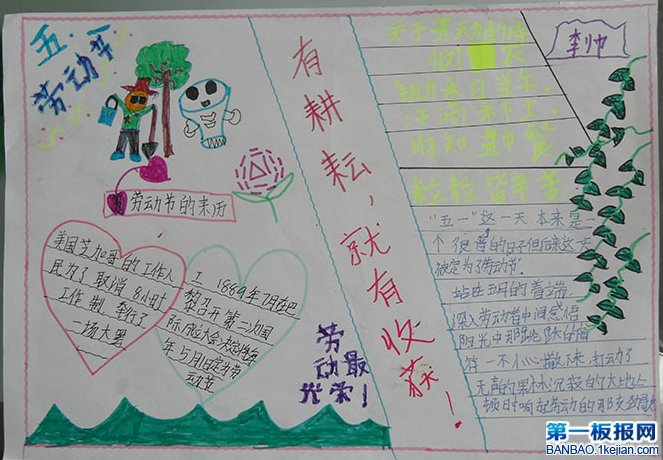 五.一
劳动节
劳动节的来历
美国芝加哥的工作人
民为了取消8小时
工作制,举行了
一场大罢
工,1889年7月在巴
黎召开第二次国
际成大会决定将每
年5月1日定为劳
动节
劳动最
光荣!
有耕耘,就有收获!
关于劳动的诗
锄禾日当午,
汗滴禾下土。
谁知盘中餐
粒粒皆辛苦
李帅
"五一"这一天本来是
一个很普的日子但后来这一天
被定为了劳动节.
站在五月的着端
深入劳动者中间感悟
阳光中那跳跃的音
符一不小心撒下来打动了
无声的果
顿时响起劳动的那支
第一板报网
BANBAO.1kejian.com